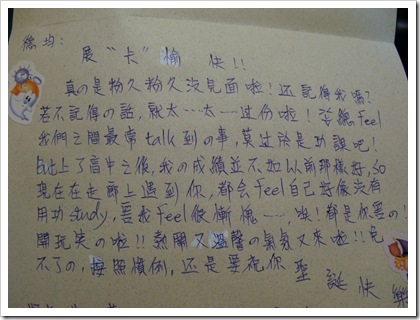 德均：
展“卡”愉 快!!
真の是粉久粉久沒見面啦！还記得我嗎？
若不記得の話，就太……太一过份啦！總 feel
我們之間最常talk到の事，莫过於是功課吧！
自此上了高中之後，我の成績並不如以前那樣好，so
現在在走廊上遇到你，都会feel自己好像沒有
用功study，害我feel很慚愧……，唉！都是你害の！
開玩笑の啦!!熱鬧又溫馨の氣氛又來啦!!免
不了の，按照慣例，还是要祝你 聖 誕 快 樂